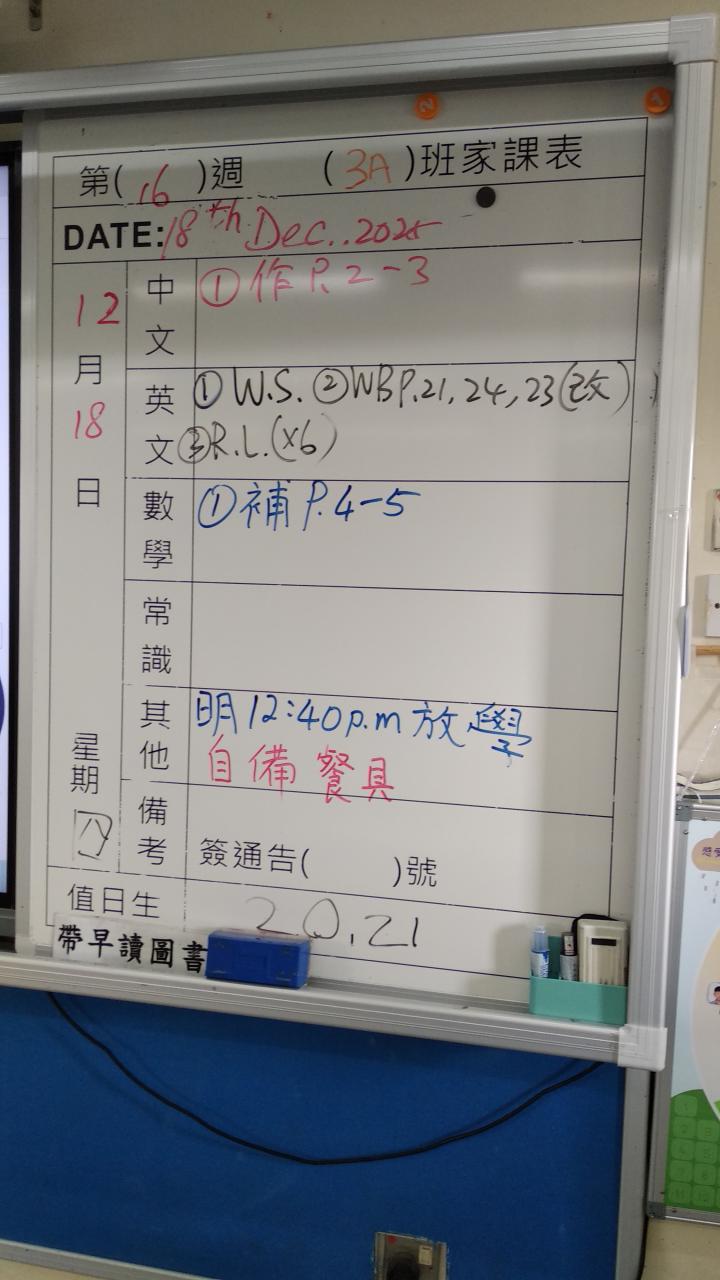 第( 16 )週 ( 3A )班家課表
DATE: 18th Dec.. 2025
12月18日 星期
中文 ①作 P. 2-3
英文 ① W.S. ② WB P.21, 24, 23(改)
③ R.L. (x6)
數學 ①補 P. 4-5
常識
其他 明 12:40 p.m 放學
自備餐具
備考 簽通告( )號
值日生 20, 21
帶早讀圖書
2
1